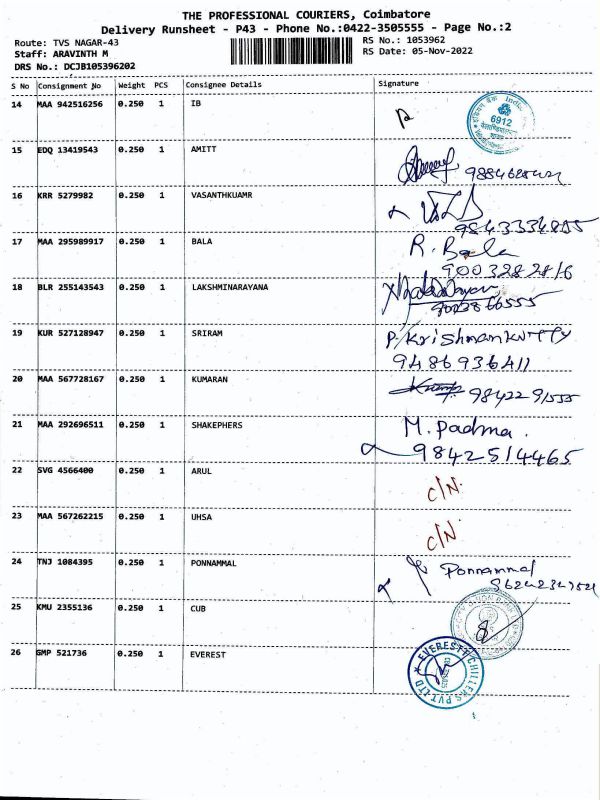 THE PROFESSIONAL COURIERS, Coimbatore
Delivery Runsheet - P43 - Phone No.:0422-3505555 - Page No.:2
Route: TVS NAGAR-43 RS No.: 1053962
Staff: ARAVINTH M RS Date: 05-Nov-2022
DRS No.: DCJB105396202
S No Consignment No Weight PCS Consignee Details Signature
14 MAA 942516256 0.250 1 IB
6912
15 EDQ 13419543 0.250 1 AMITT
16 KRR 5279982 0.250 1 VASANTHKUAMR
9843334855
17 MAA 295989917 0.250 1 BALA R. Bala
9003282816
18 BLR 255143543 0.250 1 LAKSHMINARAYANA
19 KUR 527128947 0.250 1 SRIRAM P/Krishnankutty
9486936411
20 MAA 567728167 0.250 1 KUMARAN 9842291555
21 MAA 292696511 0.250 1 SHAKEPHERS M. Padma.
9842514465
22 SVG 4566400 0.250 1 ARUL C/N.
23 MAA 567262215 0.250 1 UHSA C/N.
24 TNJ 1084395 0.250 1 PONNAMMAL Ponnammal
9624234752
25 KMU 2355136 0.250 1 CUB
26 GMP 521736 0.250 1 EVEREST
EVEREST CHILLERS PVT LTD